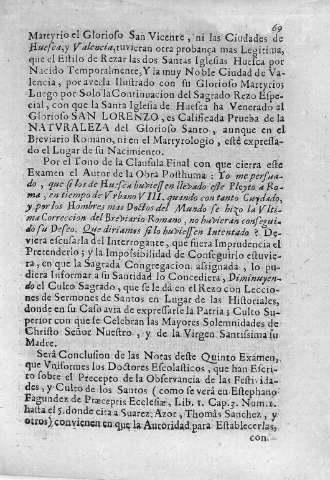 69
Martyrio el Glorioso San Vicente, ni las Ciudades de
Huesca, y Valencia, tuvieran otra probança mas Legitima,
que el Estilo de Rezar las dos Santas Iglesias Huesca por
Nacido Temporalmente, Y la muy Noble Ciudad de Va-
lencia, por averla Ilustrado con su Glorioso Martyrio;
Luego por Solo la Continuacion del Sagrado Rezo Espe-
cial, con que la Santa Iglesia de Huesca ha Venerado al
Glorioso SAN LORENZO, es Calificada Prueba de la
NATVRALEZA del Glorioso Santo, aunque en el
Breviario Romano, ni en el Martyrologio, este expressa-
do el Lugar de su Nacimiento.
Por el Tono de la Clausula Final con que cierra este
Examen el Autor de la Obra Posthuma: Yo me persua-
do, que si los de Huesca huviessen llevado este Pleyto a Ro-
ma, en tiempo de Vrbano VIII. quando con tanto Cuydado,
y por los Hombres mas Doctos del Mundo se hizo la Vlti-
ma Correccion del Breviario Romano, no huvieran consegui-
do su Deseo. Que diriamos si lo huviessen Intentado? De-
viera escusarla del Interrogante, que fuera Imprudencia el
Pretenderlo; y la Impossibilidad de Conseguirlo estuvie-
ra, en que la Sagrada Congregacion assignada, lo pu-
diera Informar a su Santidad lo Concediera, Diminuyen-
do el Culto Sagrado, que se le dá en el Rezo con Leccio-
nes de Sermones de Santos en Lugar de las Historiales,
donde en su Caso avia de expressarse la Patria; Culto Su-
perior con que se Celebran las Mayores Solemnidades de
Christo Señor Nuestro, y de la Virgen Santissima su
Madre.
Será Conclusion de las Notas deste Quinto Examen,
que Vniformes los Doctores Escolasticos, que han Escri-
to sobre el Precepto de la Observancia de las Festivida-
des, y Culto de los Santos (como se verá en Estephano
Fagundez de Præceptis Ecclesiæ, Lib. 1. Cap. 3. Num. 2.
hasta el 5. donde cita a Suarez, Azor, Thomás Sanchez, y
otros) convienen en que la Autoridad para Establecerlas,
con-